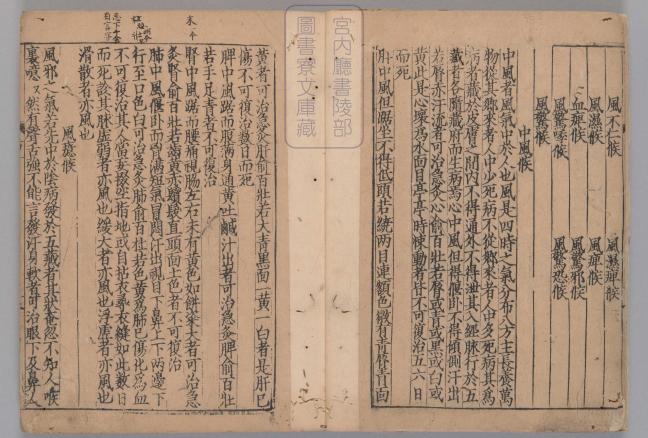 風不仁候
風濕候
風濕痺候
血痺候
風驚邪候
風驚悸候
風驚恐候
風驚候
中風候
中風者風氣中於人也風是四時之氣分布八方主長養萬
物從其鄉來者人中少死病不從其鄉來者人中多死病其為
病者藏於皮膚之間内不得通外不得泄其入經脉行於五
藏者各隨藏府而生病焉心中風但得偃卧不得傾側汗出
若脣赤汗流者可治急灸心俞百壯若脣或青或黑或白或
黄此是心壞為水面目亭亭時悚動者皆不可復治五六日
而死
肝中風但踞坐不得低頭若繞兩目連額色微有青脣青面
黄者可治急灸肝俞百壯若大青黒面一黄一白者是肝已
傷不可復治數日而死
脾中風踞而腹滿身通黄吐鹹汁出者可治急灸脾俞百壯
若手足青者不可復治
腎中風踞而腰痛視脇左右未有黄色如餅粢大者可治急
灸腎俞百壯若齒黄赤鬢髮直頭面土色者不可復治
肺中風偃卧而胷滿短氣冒悶汗出視目下鼻上下兩邊下
行至口色白可治急灸肺俞百壯若色黄為肺已傷化為血
不可復治其人當妄掇空指地或自拈衣尋縫如此數日
而死診其脉虛弱者亦風也緩大者亦風也浮虛者亦風也
滑散者亦風也
風癔候
風邪之氣若先中於陰病發於五藏者其狀奄忽不知人喉
裏噫噫然有聲舌強不能言發汗身軟者可治眼下及鼻人
宮内廳書陵部
圖書寮文庫藏